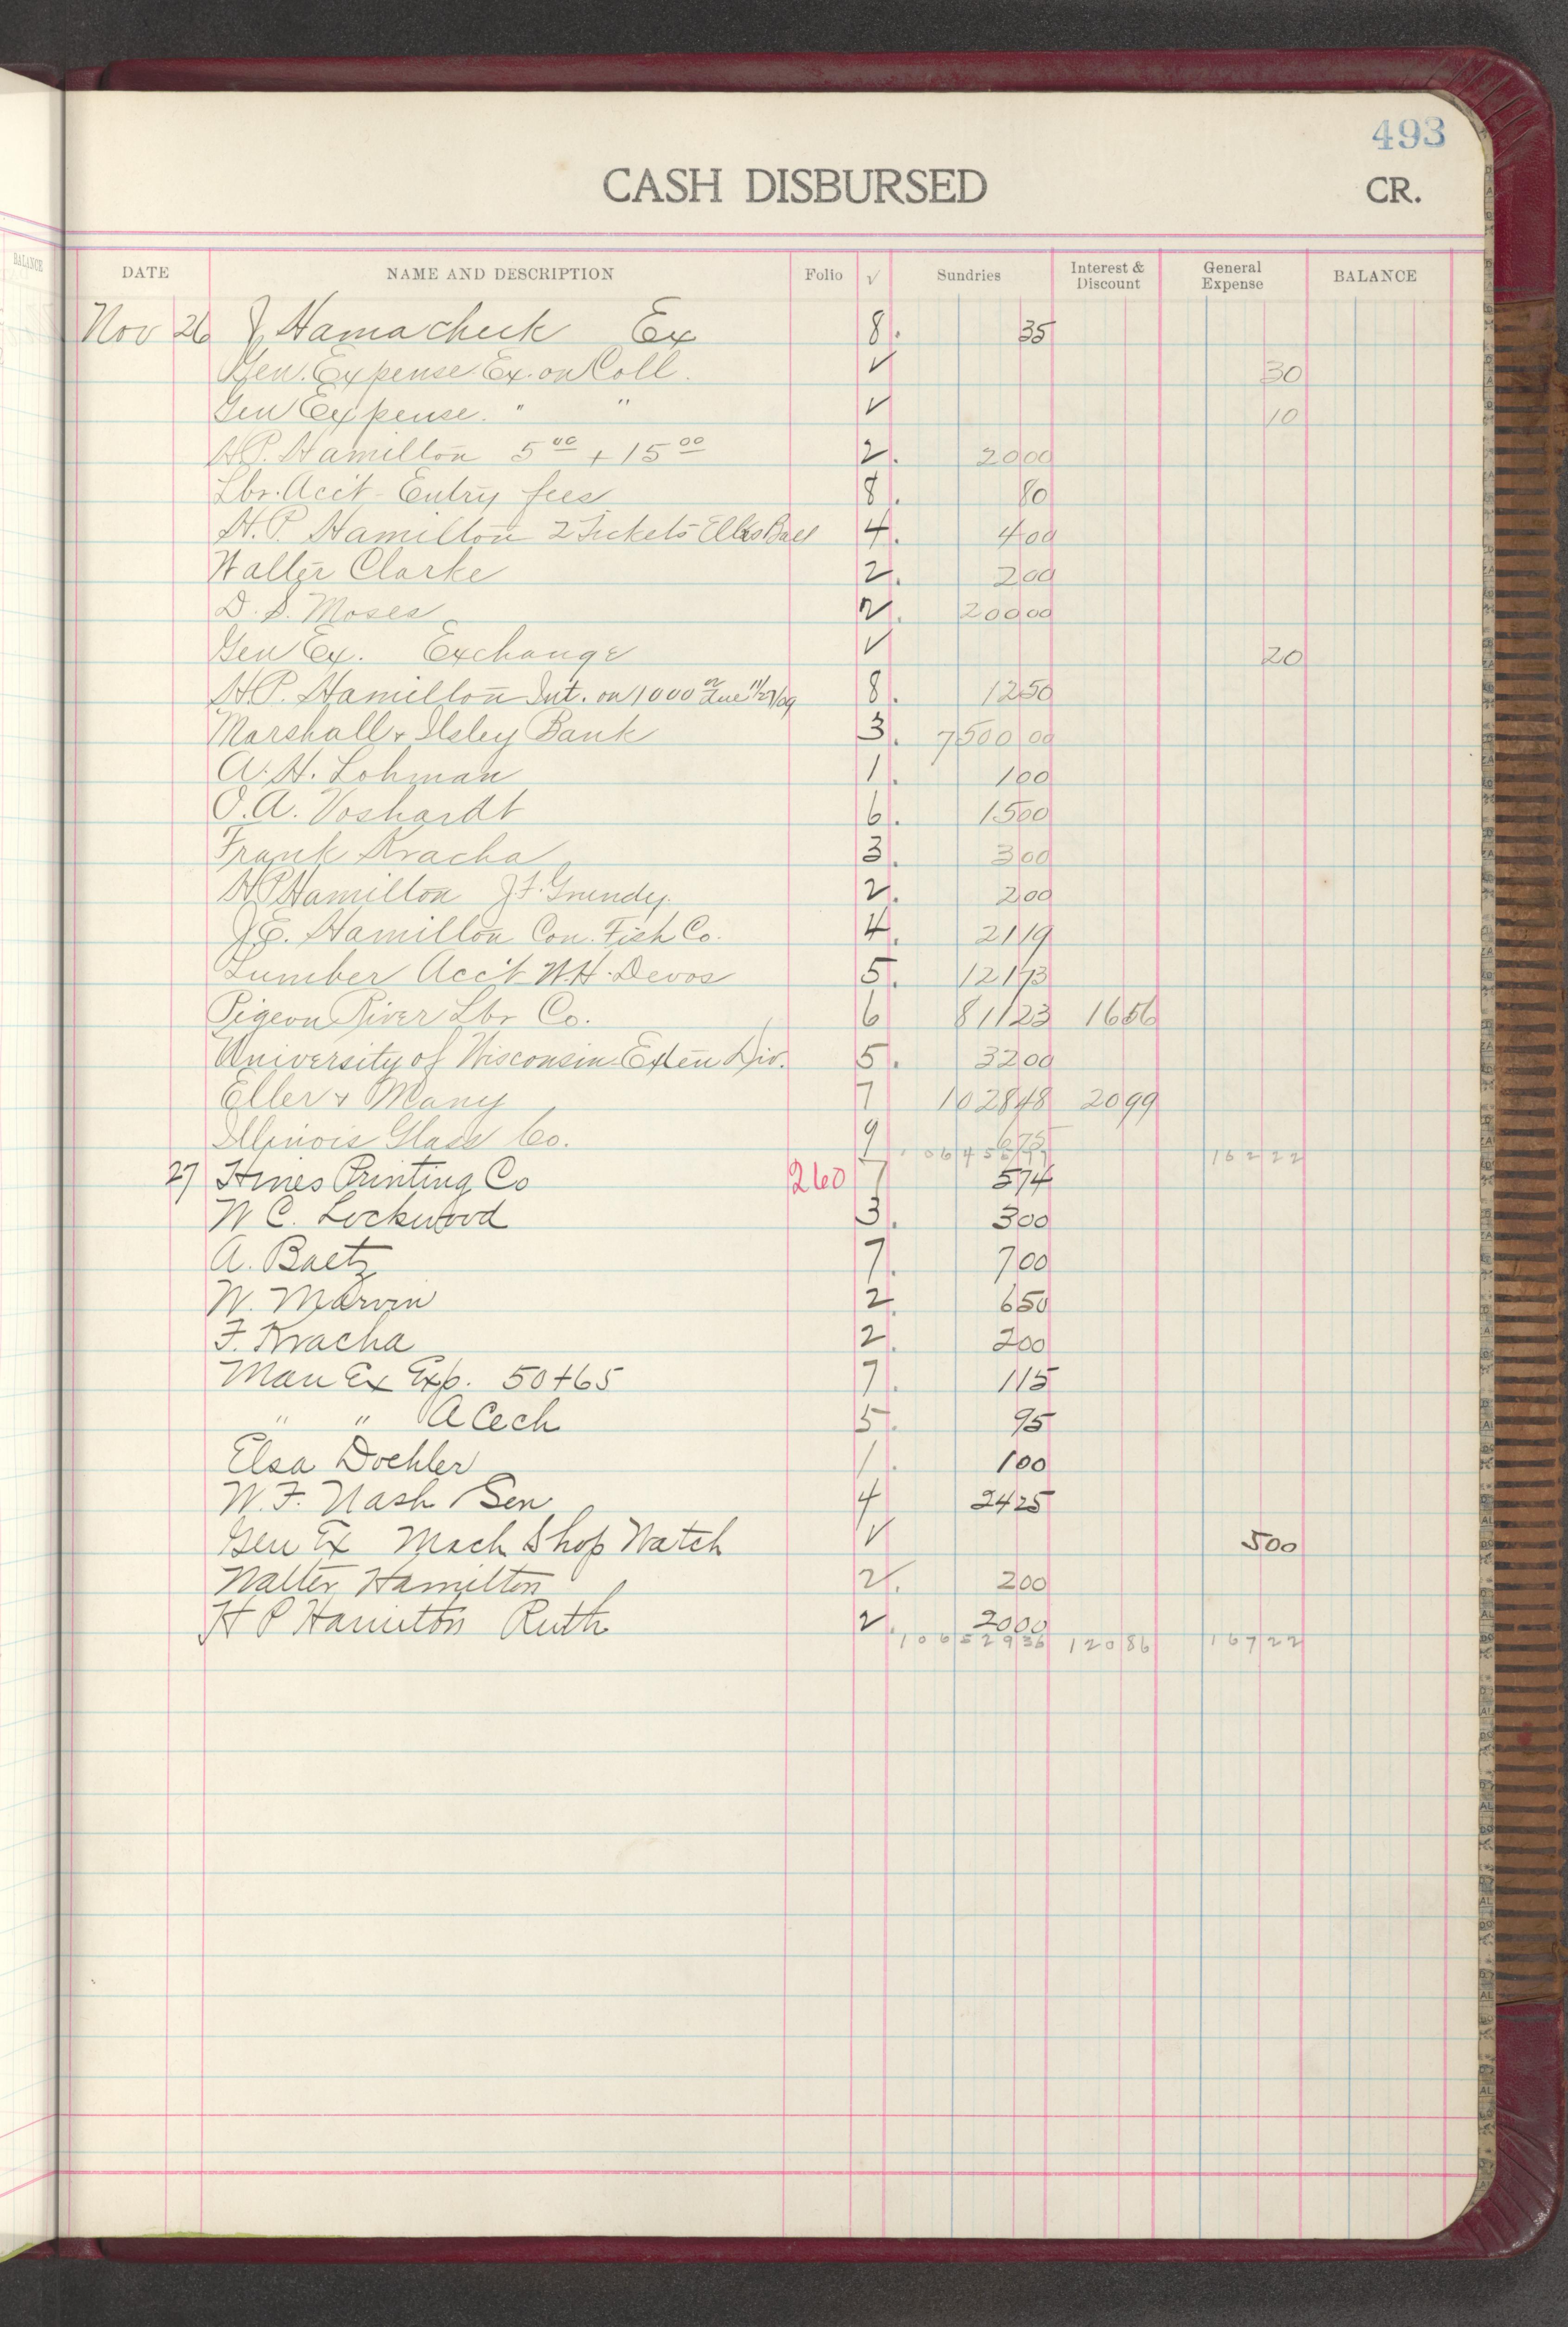 493
CASH DISBURSED CR.
BALANCE
DATE NAME AND DESCRIPTION Folio √ Sundries Interest & Discount General Expense BALANCE
Nov 26 J Hamacheck Ex 8. 35
Gen. Expense Ex. on Coll. √ 30
Gen Expense. " " √ 10
H.P. Hamilton 5 00 + 15 00 2. 20 00
Lbr. Acc't Entry fees 8. 80
H.P. Hamilton 2 Tickets Elks Ball 4. 4 00
Walter Clarke 2. 2 00
D. S. Moses 2. 200 00
Gen Ex. Exchange √ 20
H.P. Hamilton Int. on 1000 00 due 11/27/09 8. 12 50
Marshall & Ilsley Bank 3. 7500 00
A. H. Lohman 1. 1 00
O. A. Voshardt 6. 15 00
Frank Kracha 3. 3 00
H P Hamilton J. F. Grundy. 2. 2 00
J E. Hamilton Con. Fish Co. 4. 21 19
Lumber Acc't W. H. Devos 5. 121 73
Pigeon River Lbr Co. 6 811 23 16 56
University of Wisconsin Exten Div. 5. 32 00
Eller & Many 7 1028 48 20 99
Illinois Glass Co. 9 6 75
162 22
27 Hines Printing Co 260 7 5 74
W C. Lockwood 3. 3 00
A. Baetz 7. 7 00
W. Marvin 2. 6 50
F. Kracha 2. 2 00
Man Ex Exp. 50+65 7. 1 15
" " A Cech 5. 95
Elsa Doehler 1. 1 00
W. F. Nash Gen 4 24 25
Gen Ex Mach Shop Watch √ 5 00
Walter Hamilton 2. 2 00
H P Hamilton Ruth 2. 20 00
106529 36 120 86 167 22